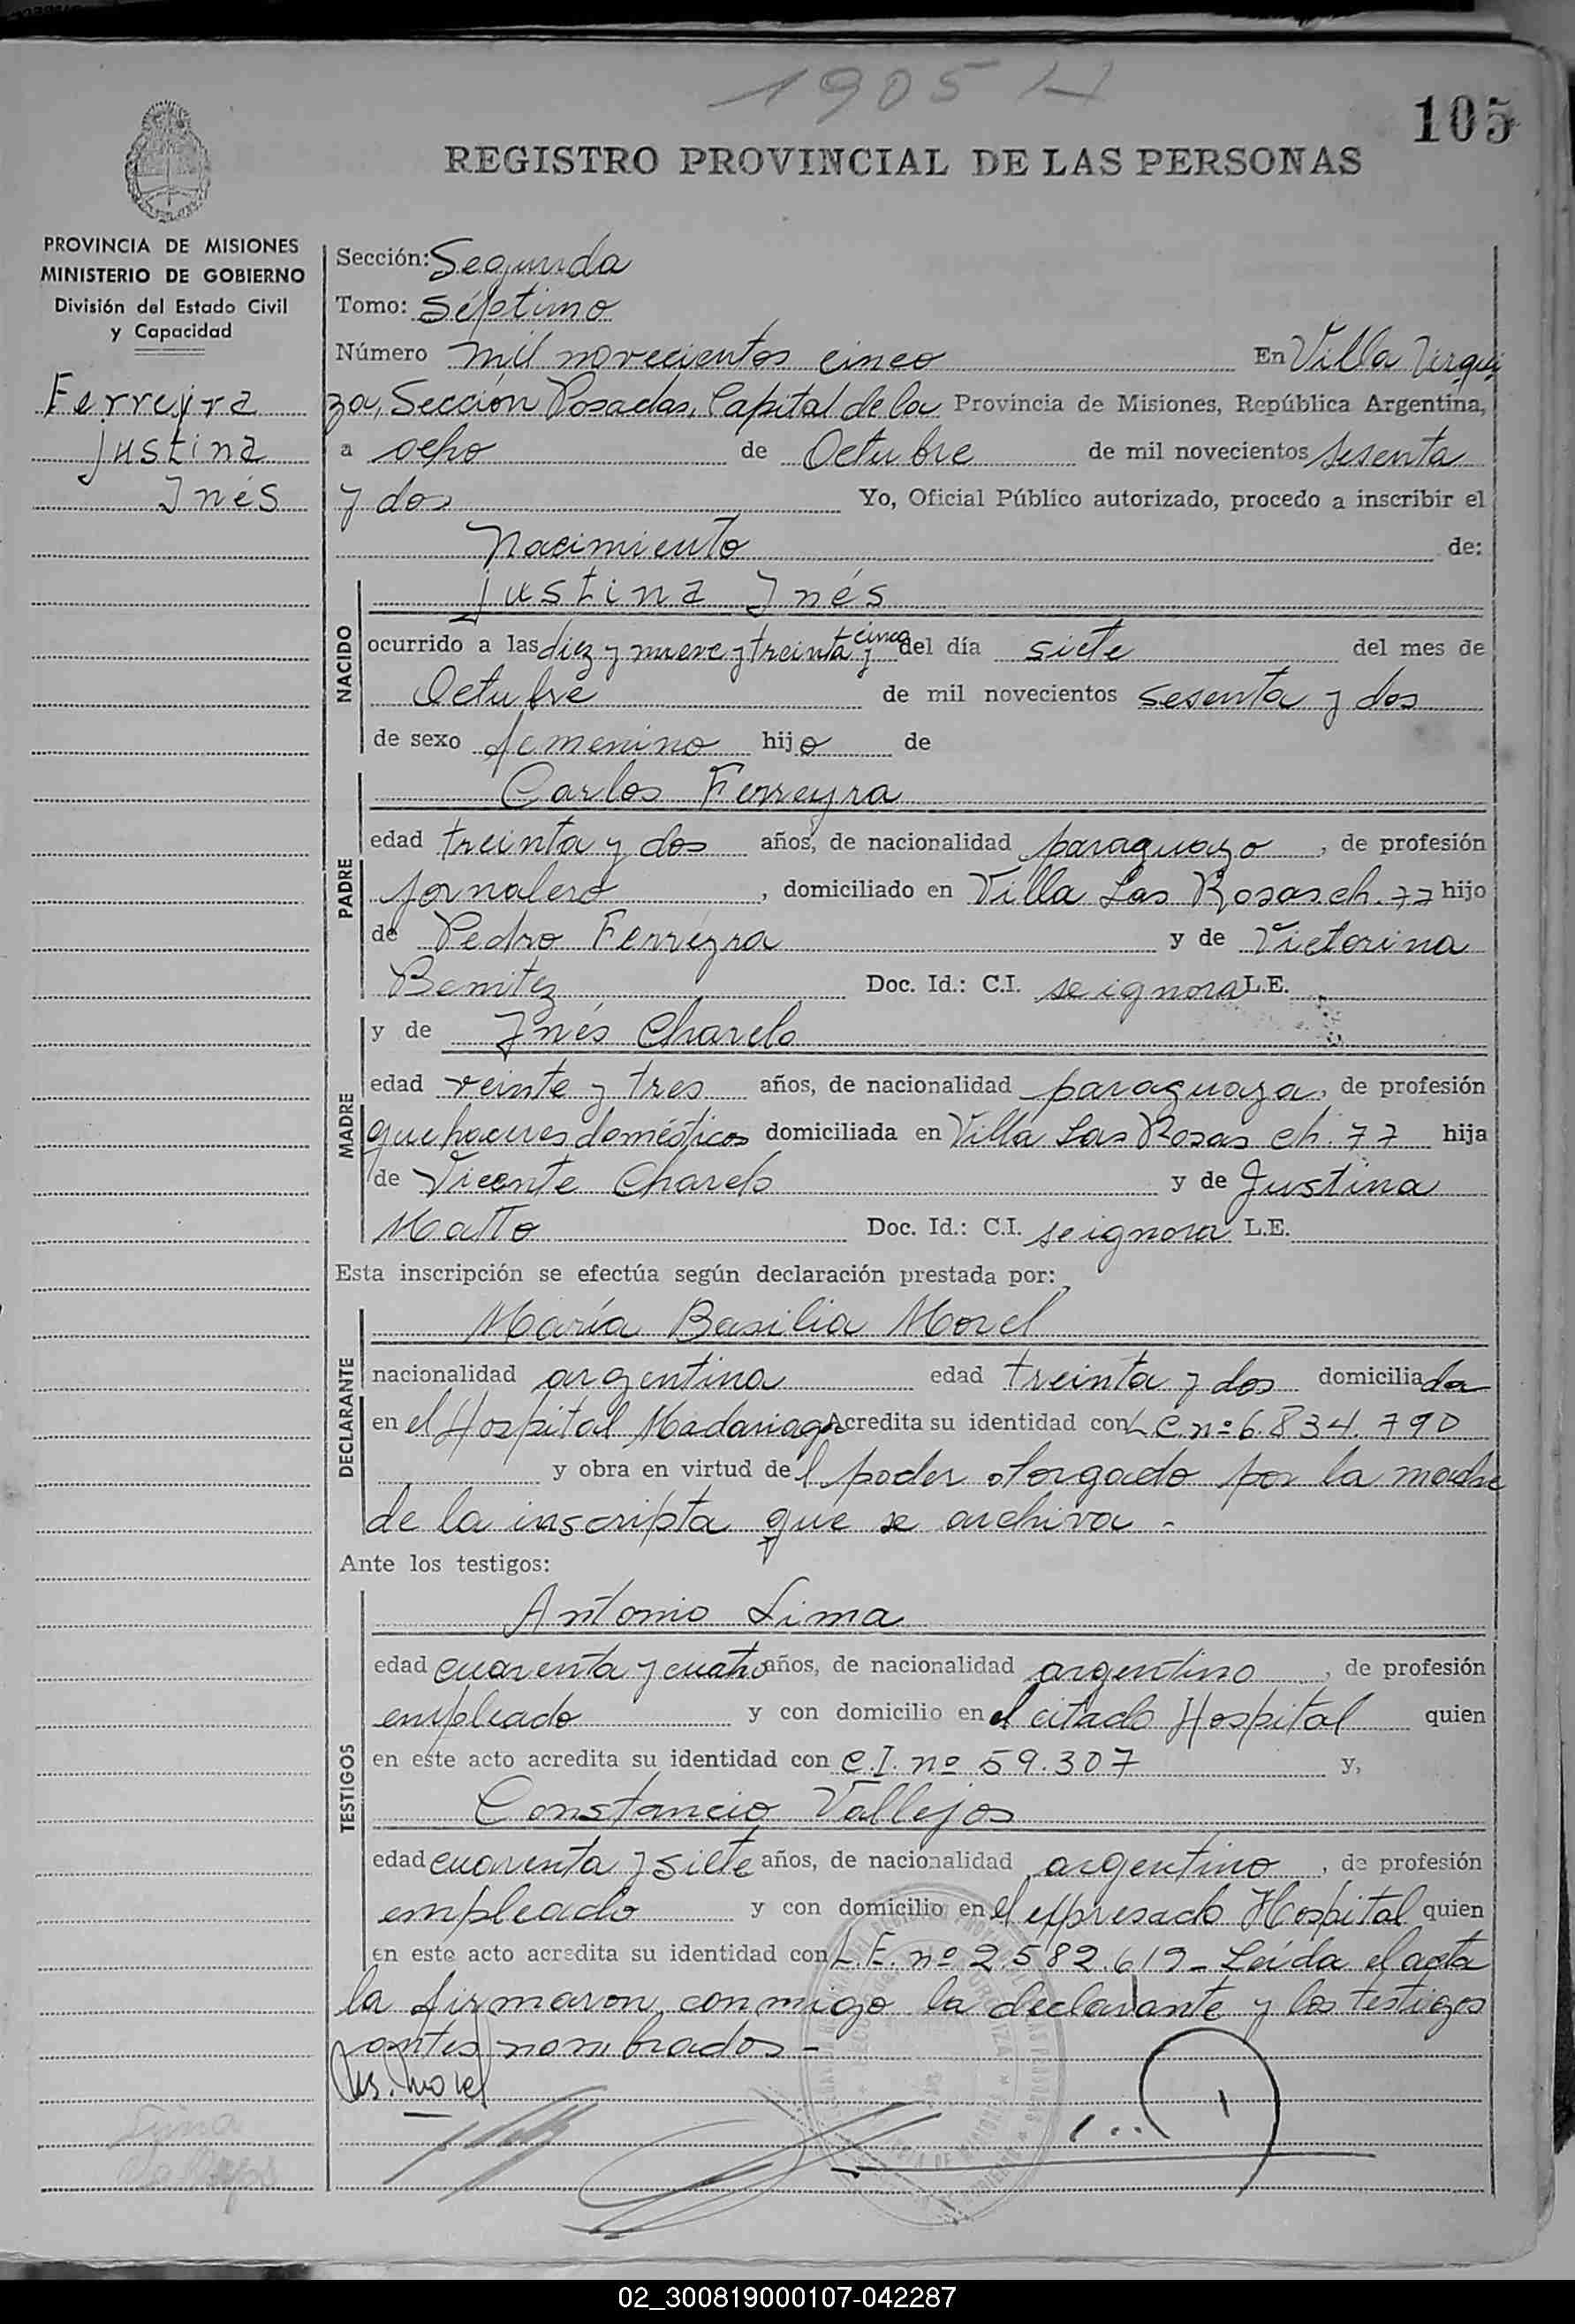 1905 H
105
REGISTRO PROVINCIAL DE LAS PERSONAS
PROVINCIA DE MISIONES
MINISTERIO DE GOBIERNO
División del Estado Civil
y Capacidad
Ferreyra
Justina
Inés
Sección: Segunda
Tomo: Séptimo
Número mil novecientos cinco En Villa Urqui
za, Sección Posadas, Capital de la Provincia de Misiones, República Argentina,
a ocho de Octubre de mil novecientos sesenta
y dos Yo, Oficial Público autorizado, procedo a inscribir el
Nacimiento de:
NACIDO
Justina Inés
ocurrido a las diez y nueve y treinta y cinco del día siete del mes de
Octubre de mil novecientos sesenta y dos
de sexo femenino hijo de
PADRE
Carlos Ferreyra
edad treinta y dos años, de nacionalidad paraguayo, de profesión
jornalero, domiciliado en Villa Las Rosas ch. 77 hijo
de Pedro Ferreyra y de Victorina
Benitez Doc. Id.: C.I. se ignora L.E.
MADRE
y de Inés Charelo
edad veinte y tres años, de nacionalidad paraguaya, de profesión
quehaceres domésticos domiciliada en Villa Las Rosas ch. 77 hija
de Vicente Charelo y de Justina
Matto Doc. Id.: C.I. se ignora L.E.
Esta inscripción se efectúa según declaración prestada por:
DECLARANTE
María Basilia Morel
nacionalidad argentina edad treinta y dos domiciliada
en el Hospital Madariaga Acredita su identidad con L.C. nº 6.834.790
y obra en virtud del poder otorgado por la madre
de la inscripta que se archiva -
Ante los testigos:
TESTIGOS
Antonio Lima
edad cuarenta y cuatro años, de nacionalidad argentino, de profesión
empleado y con domicilio en el citado Hospital quien
en este acto acredita su identidad con C.I. nº 59.307 y,
Constancio Vallejos
edad cuarenta y siete años, de nacionalidad argentino, de profesión
empleado y con domicilio en el expresado Hospital quien
en este acto acredita su identidad con L.E. nº 2.582.619 - Leída el acta
la firmaron conmigo la declarante y los testigos
antes nombrados -
Ms. Morel
02_300819000107-042287